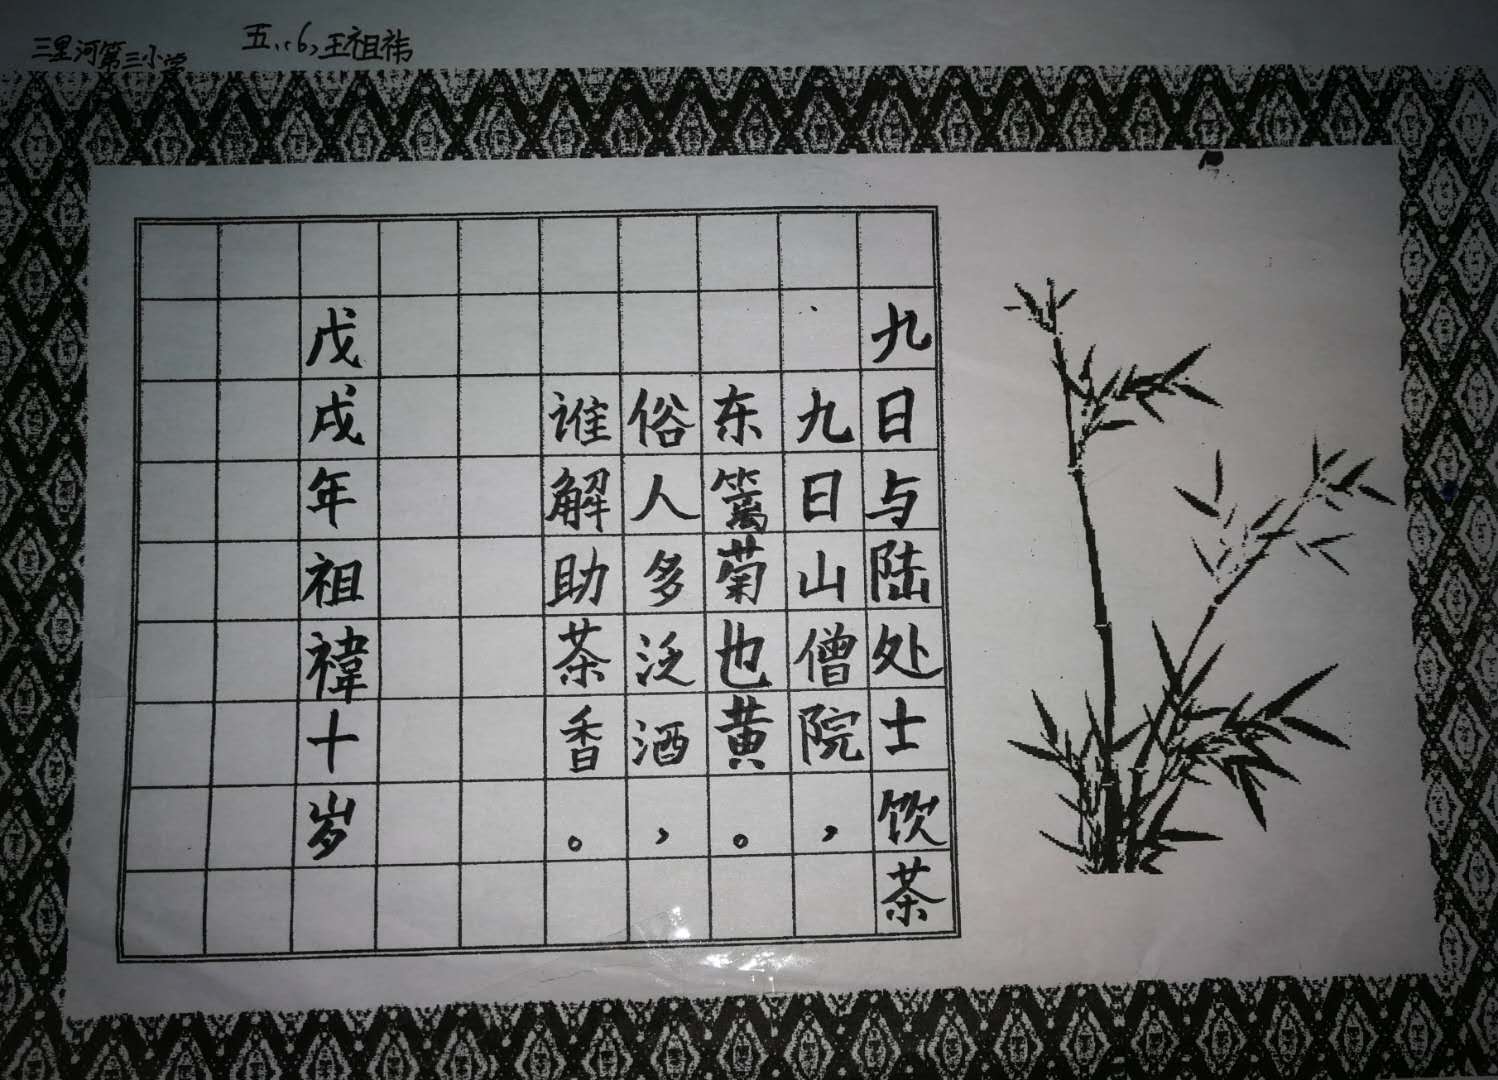 三里河第三小学 五、(6)、王祖祎
九日与陆处士饮茶
九日山僧院，
东篱菊也黄。
俗人多泛酒，
谁解助茶香。
戊戌年祖禕十岁